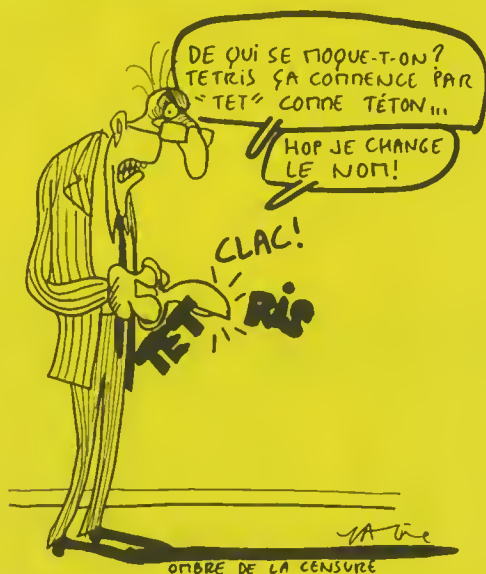 DE QUI SE MOQUE-T-ON?
TETRIS ÇA COMMENCE PAR
"TET" COMME TÉTON...
HOP JE CHANGE
LE NOM!
CLAC!
TET RIS
OMBRE DE LA CENSURE